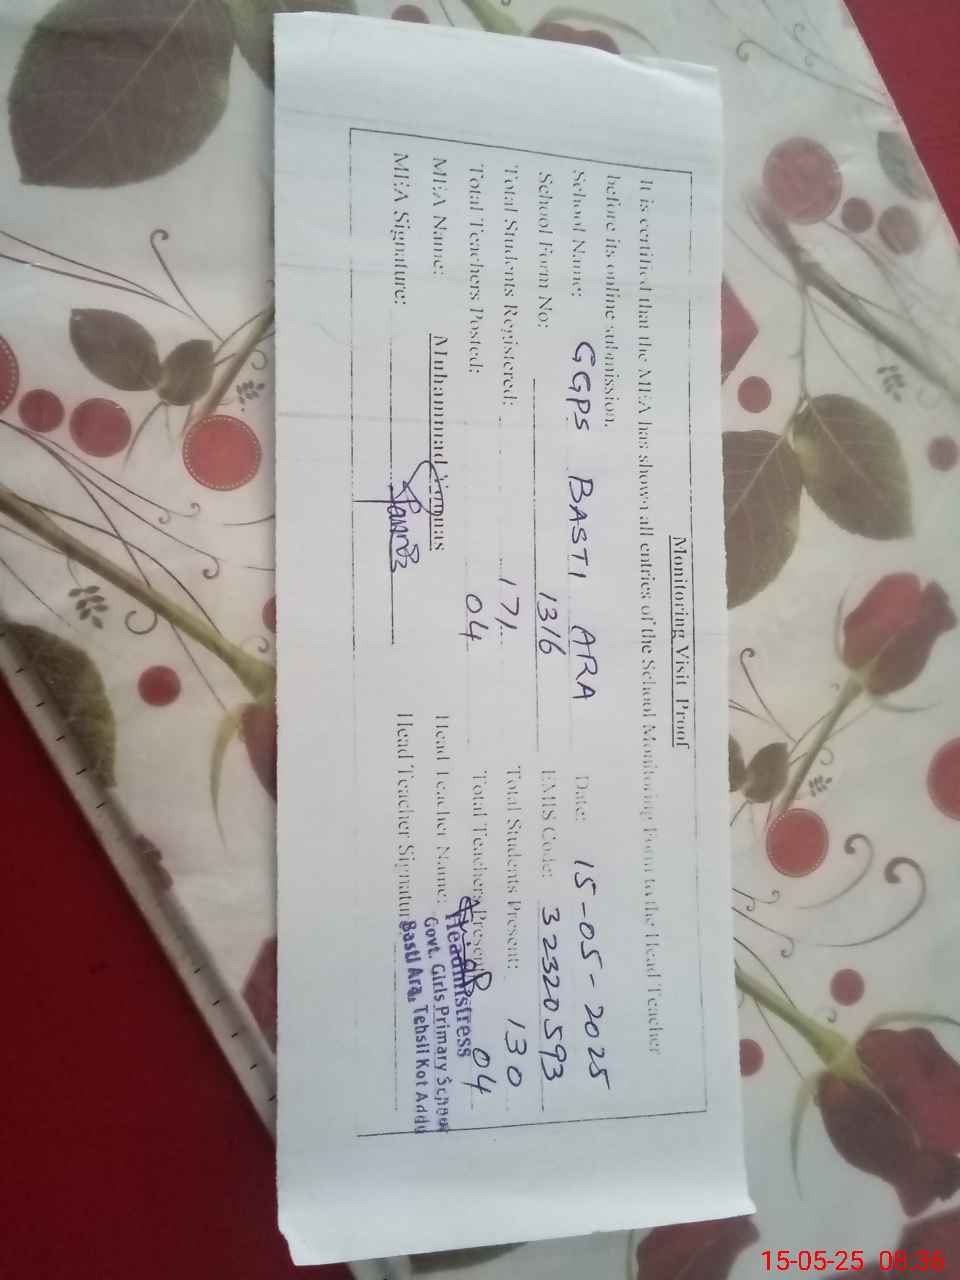 Monitoring Visit Proof
It is certified that the MEA has shown all entries of the School Monitoring Form to the Head Teacher
before its online submission.
School Name: GGPS BASTI ARA Date: 15-05-2025
School Form No: 1316 EMIS Code: 32320593
Total Students Registered: 171 Total Students Present: 130
Total Teachers Posted: 04 Total Teachers Present 04
MEA Name: Muhammad Younas Head Teacher Name:
MEA Signature: Head Teacher Signature
Headmistress
Govt. Girls Primary School
Basti Ara, Tehsil Kot Addu
15-05-25 08:36